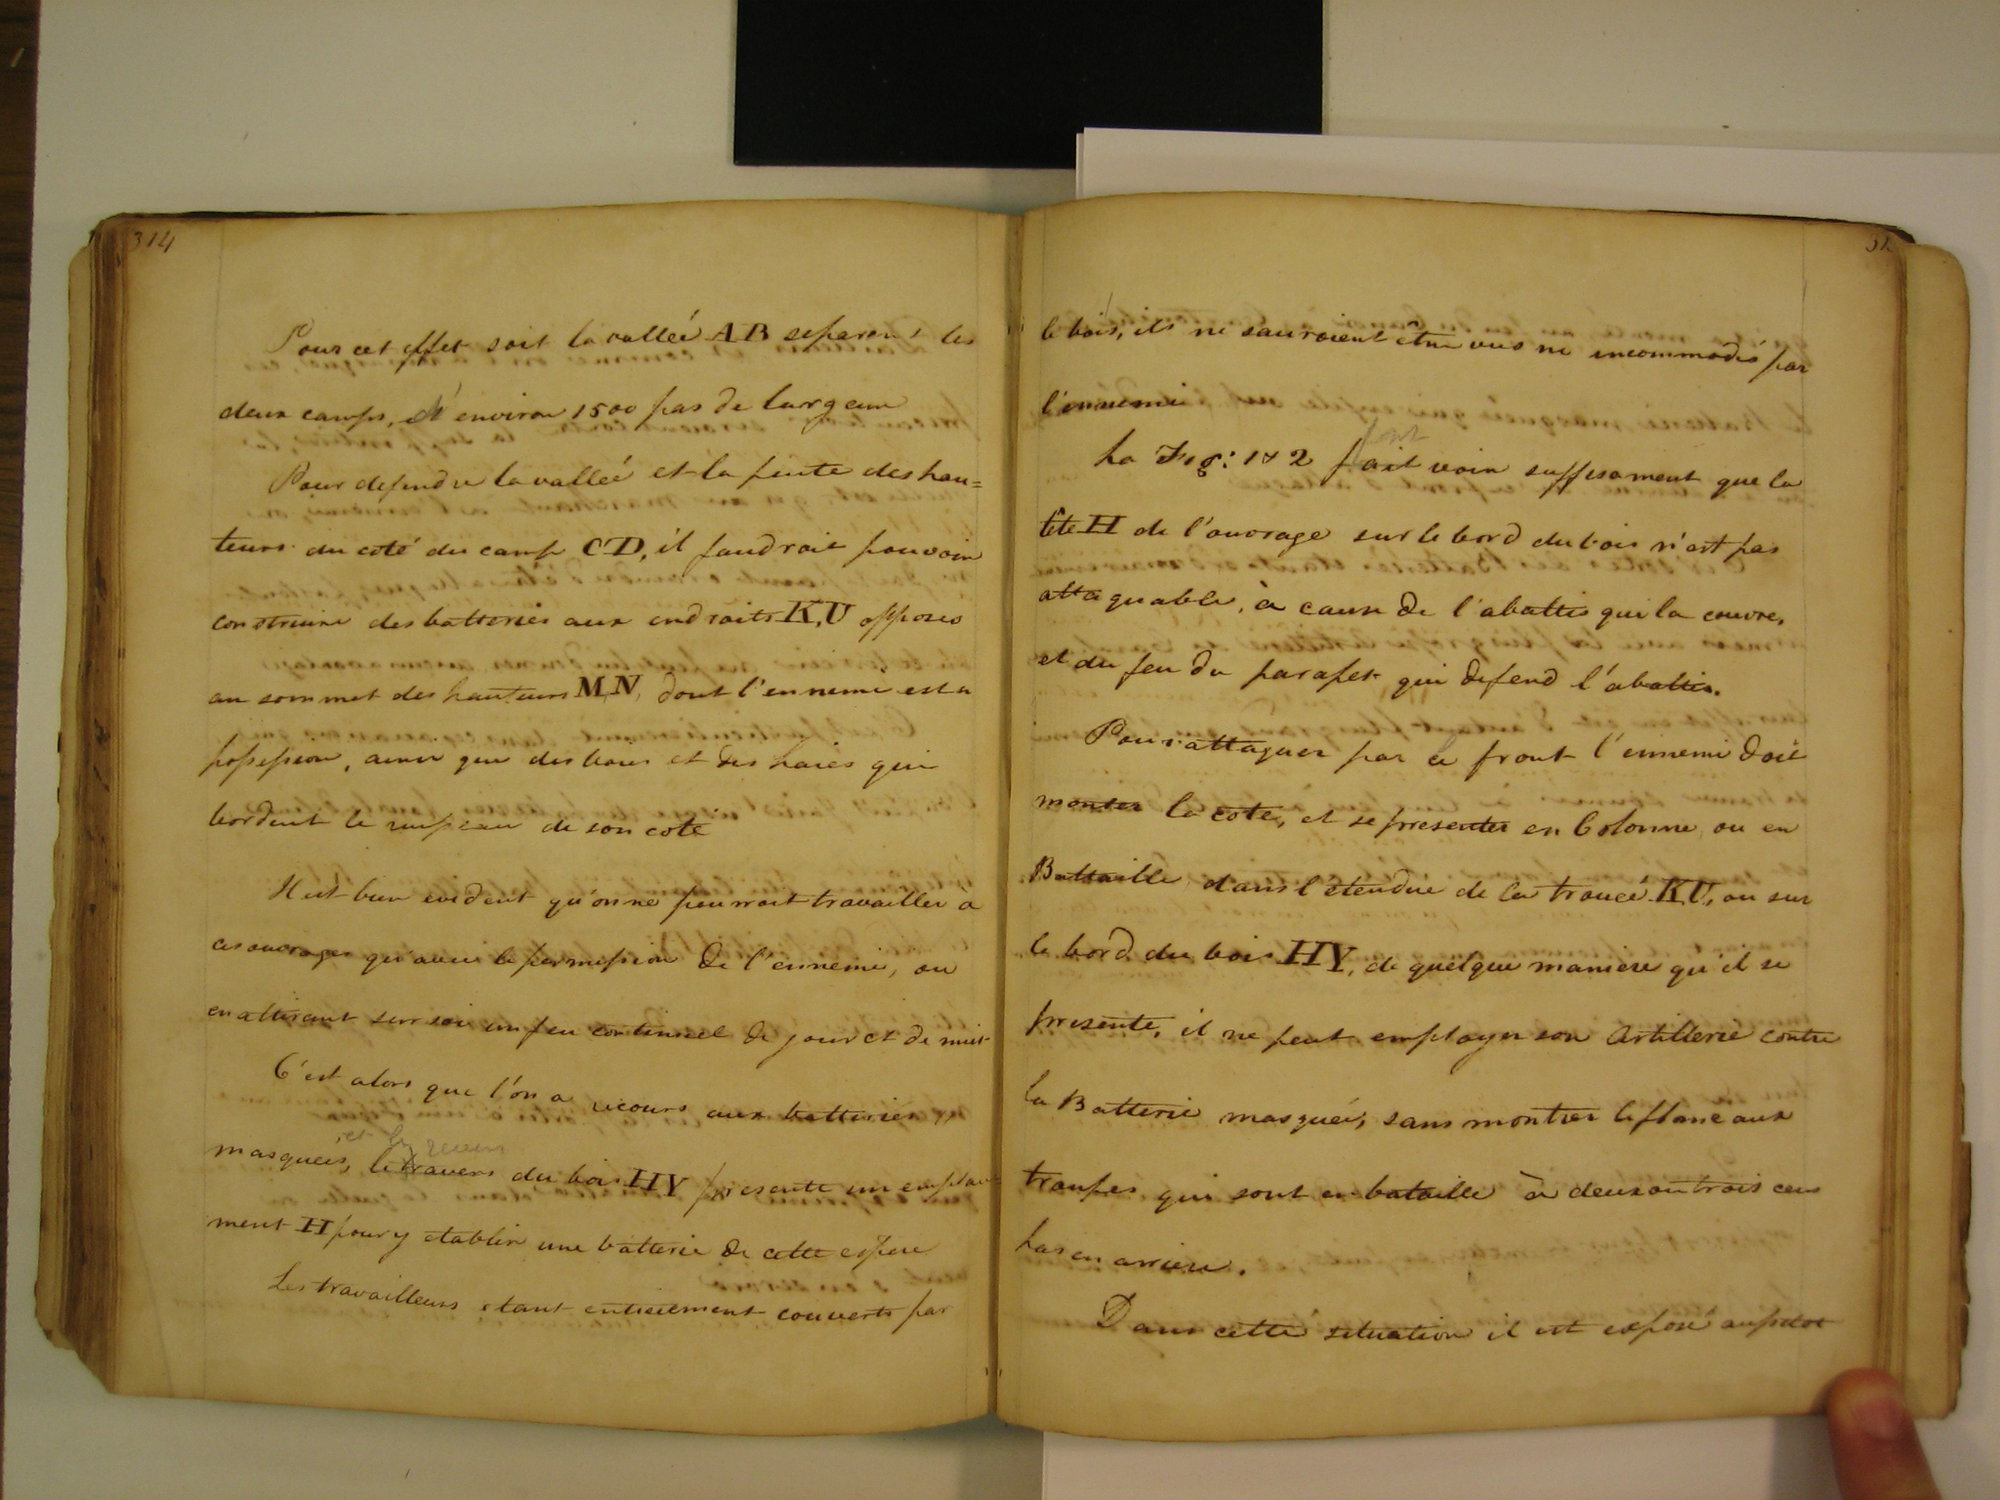 314
Pour cet effet soit la valleé AB separant les
deux camps, d'environ 1500 pas de largeur
Pour defendre la valleé et la pente des hau=
teurs du coté du camp CD, il faudroit pouvoir
construire des batteries aux endroits K,U opposés
au sommet des hauteurs M,N, dont l'ennemi est a
possession, ainsi que des bois et des haies qui
bordent le ruisseau de son coté
Il est bien evident qu'on ne pourroit travailler à
ces ouvrages qu'avec la permission de l'ennemi, ou
en attirant sur soi un feu continuel de jour et de nuit
C'est alors que l'on a recours aux batteries
et le revers
masqueés, le travers du bois HY presente un emplace
ment H pour y etablir une batterie de cette espece
Les travailleurs etant entierement couverts par
le bois, ils ne sauroient être vus ni incommodés par
l'ennemi
font
La Fig: 1 & 2 fait voir suffisament que la
tête H de l'ouvrage sur le bord du bois n'est pas
attaquable, à cause de l'abattis qui la couvre,
et du feu du parapet qui defend l'abattis.
Pour attaquer par le front l'ennemi doit
monter la cote, et se presenter en Colonne ou en
Battaille dans l'etendue de la troueé K,U, ou sur
le bord du bois HY, de quelque maniere qu'il se
presente, il ne peut employer son artillerie contre
la Batterie masqueé, sans montrer le flanc aux
troupes qui sont en bataille à deux ou trois cens
pas en arriere.
Dans cette situation il est exposé aussitot